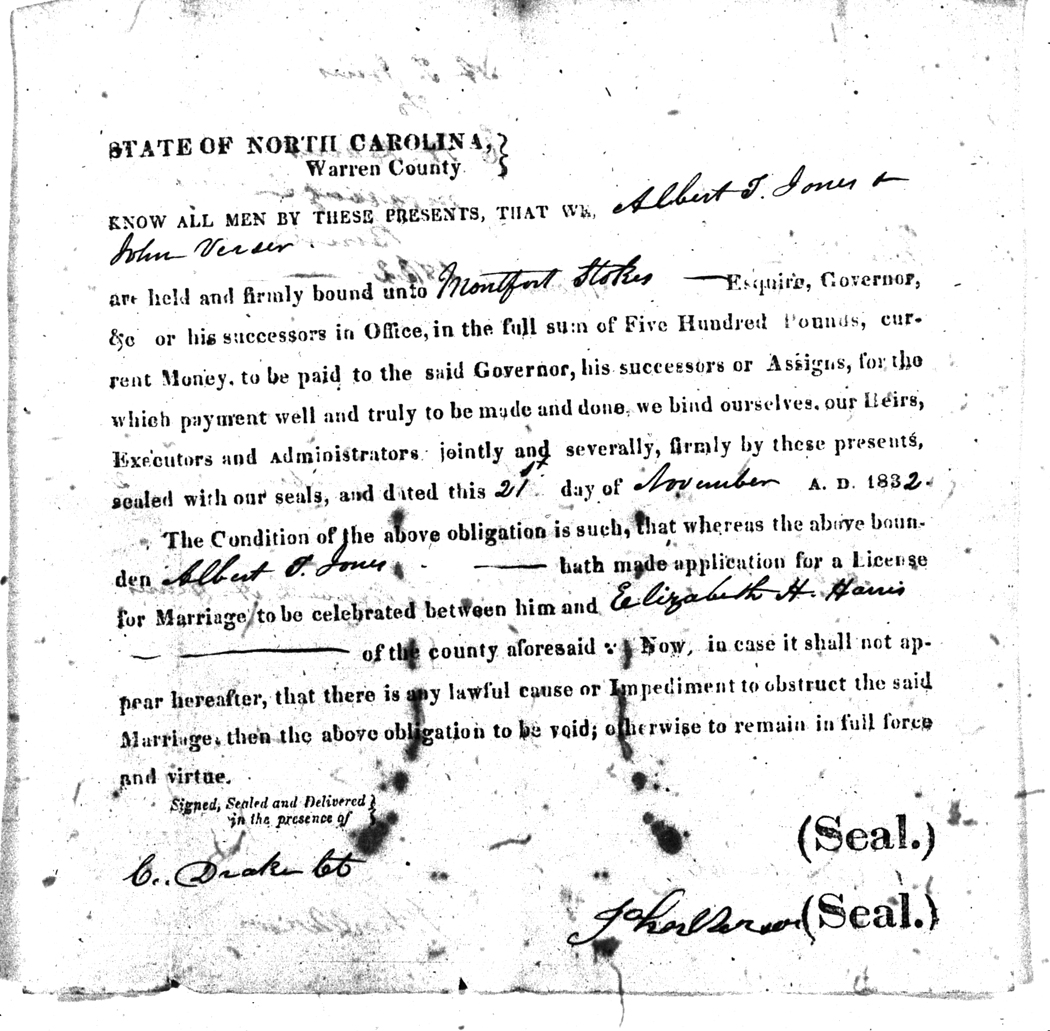 STATE OF NORTH CAROLINA,
Warren County
KNOW ALL MEN BY THESE PRESENTS, THAT WE, Albert T. Jones &
John Verser
are held and firmly bound unto Montfort Stokes Esquire, Governor,
&c or his successors in Office, in the full sum of Five Hundred Pounds, cur-
rent Money, to be paid to the said Governor, his successors or Assigns, for the
which payment well and truly to be made and done, we bind ourselves, our Heirs,
Executors and Administrators jointly and severally, firmly by these presents,
sealed with our seals, and dated this 21st day of November A. D. 1832.
The Condition of the above obligation is such, that whereas the above boun-
den Albert T. Jones hath made application for a License
for Marriage to be celebrated between him and Elizabeth H. Harris
of the county aforesaid : Now, in case it shall not ap-
pear hereafter, that there is any lawful cause or Impediment to obstruct the said
Marriage, then the above obligation to be void; otherwise to remain in full force
and virtue.
Signed, Sealed and Delivered
in the presence of
(Seal.)
C. Drake
John Verser (Seal.)